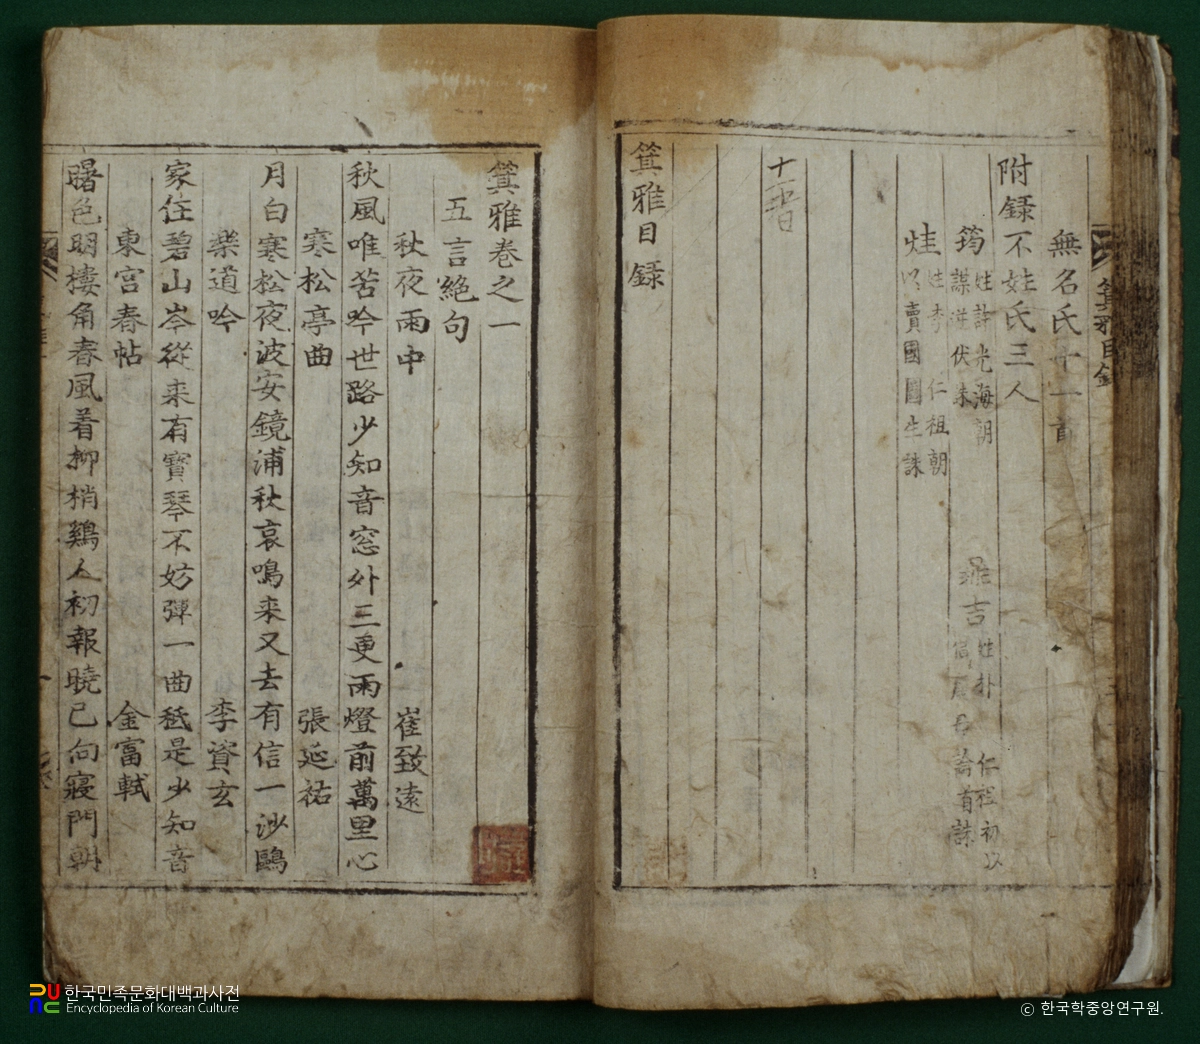 箕雅目錄
無名氏十一首
附録不姓氏三人
筠
姓許 光海朝
謀逆伏誅
吉
姓朴 仁祖初以
誅
姓李 仁祖朝
以賣國圖生誅
箕雅目録
箕雅卷之一
五言絶句
秋夜雨中 崔致遠
秋風唯苦吟世路少知音窓外三更雨燈前萬里心
寒松亭曲 張延祐
月白寒松夜波安鏡浦秋哀鳴来又去有信一沙鷗
樂道吟 李資玄
家住碧山岑從来有寶琴不妨彈一曲秪是少知音
東宮春帖 金富軾
曙色明樓角春風着柳梢鷄人初報曉已向寢門朝
한국민족문화대백과사전
Encyclopedia of Korean Culture
ⓒ 한국학중앙연구원.